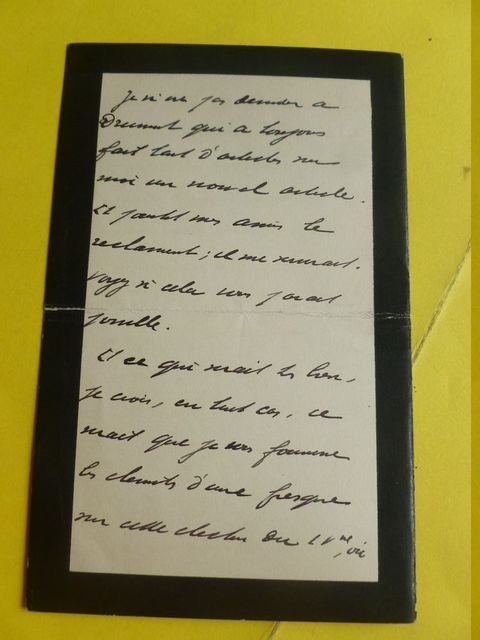 Je n'ose pas demander à
Drumont qui a toujours
fait tant d'articles sur
moi un nouvel article.
Et pourtant mes amis le
réclament ; il me servirait.
Voyez si cela vous paraît
possible.
Et ce qui serait très bien,
je crois, en tout cas, ce
serait que je vous fournisse
les éléments d'une fresque
sur cette élection du